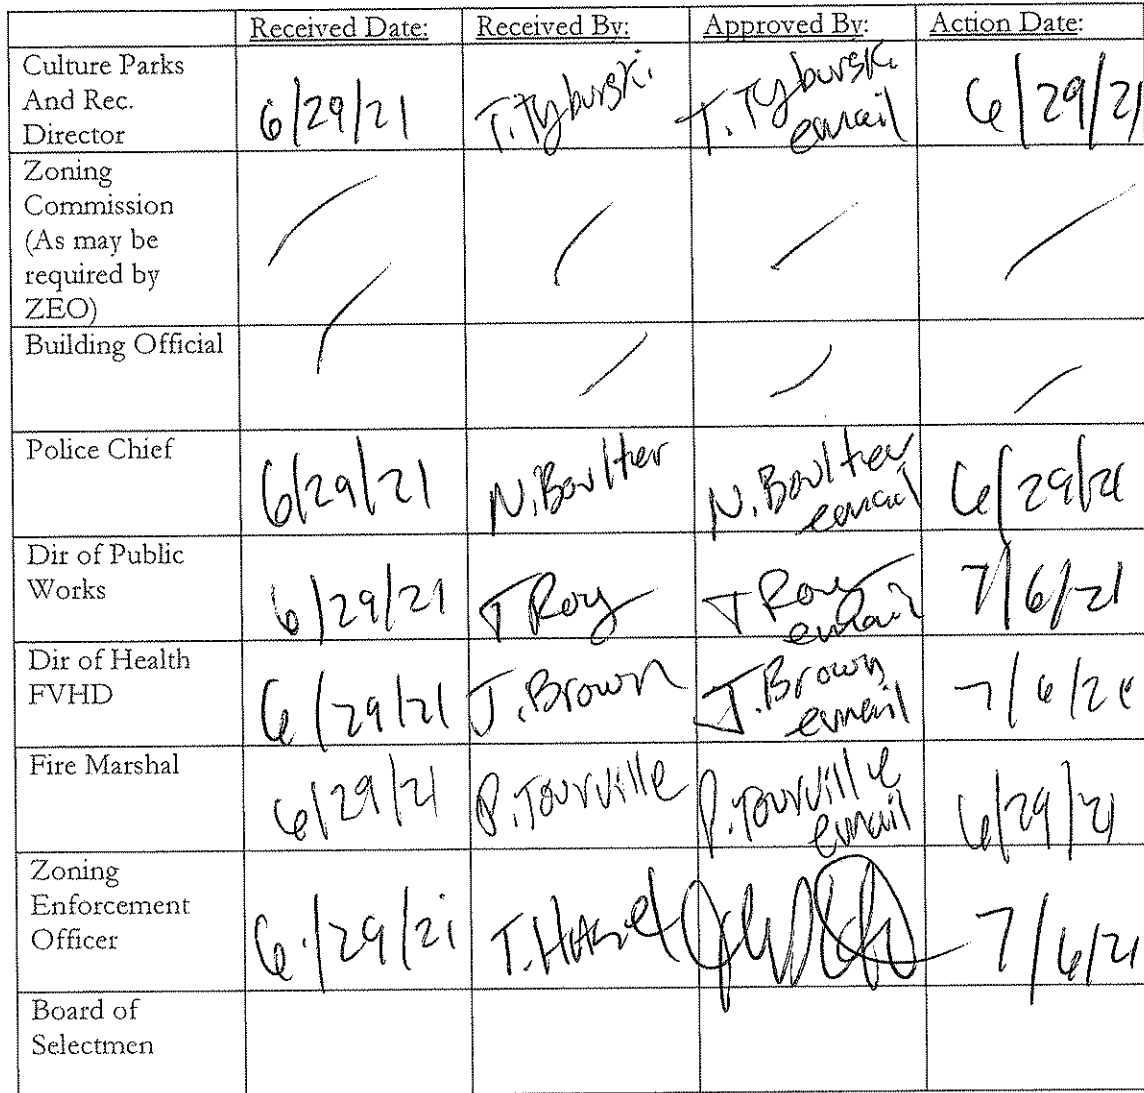 Received Date: Received By: Approved By: Action Date:
Culture Parks
And Rec.
Director
6/29/21 T. Tyburski T. Tyburski
email
6/29/21
Zoning
Commission
(As may be
required by
ZEO)
Building Official
Police Chief
6/29/21 N. Boulter N. Boulter
email
6/29/21
Dir of Public
Works
6/29/21 T Roy T Roy
email
7/6/21
Dir of Health
FVHD
6/29/21 J. Brown J. Brown
email
7/6/21
Fire Marshal
6/29/21 P. Tourville P. Tourville
email
6/29/21
Zoning
Enforcement
Officer
6/29/21 T. 7/6/21
Board of
Selectmen